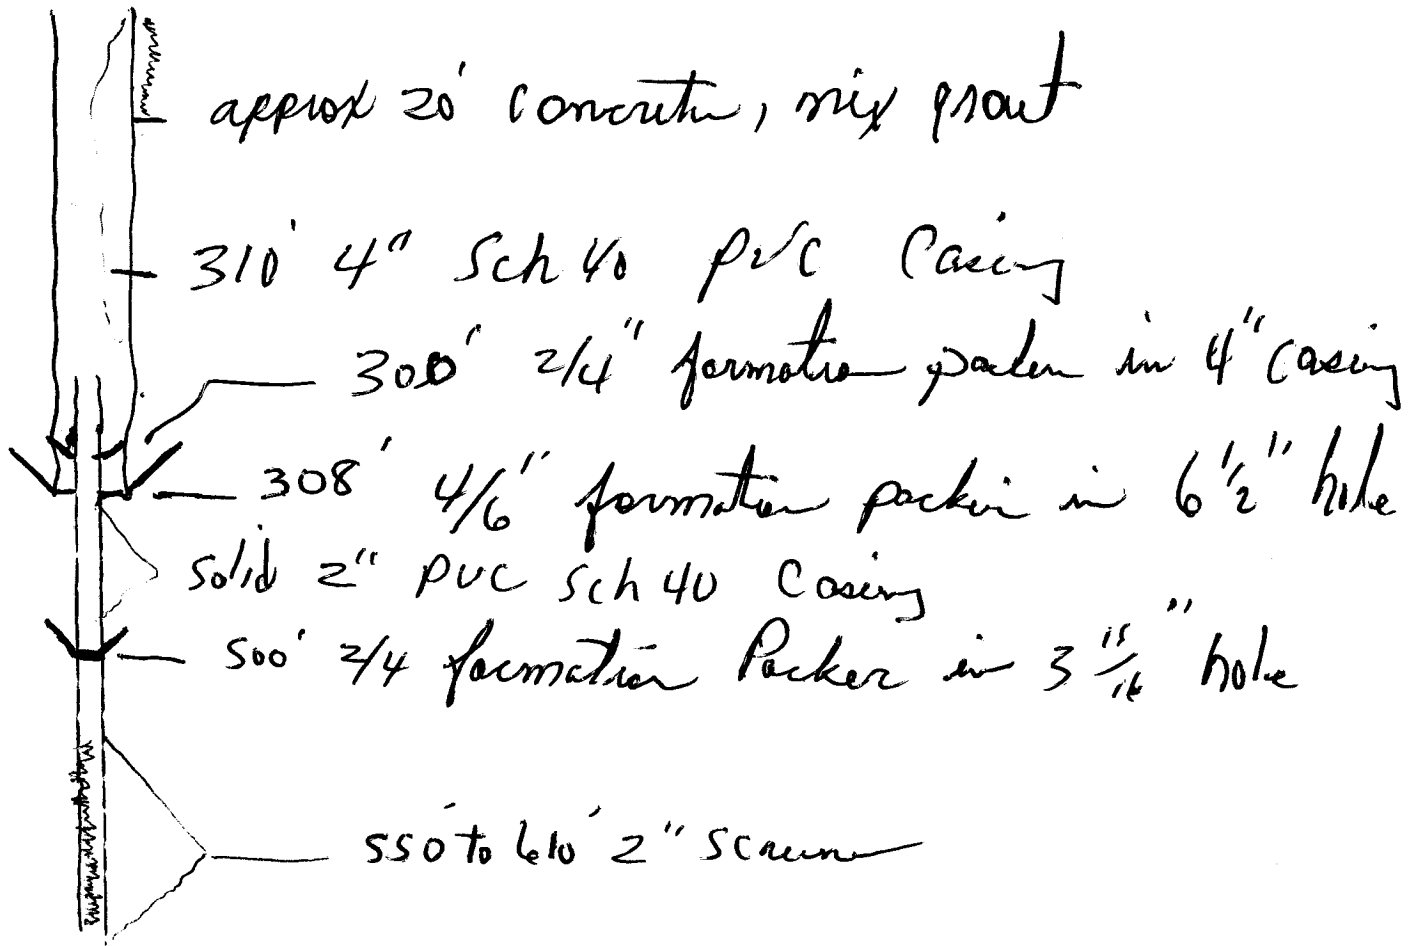 approx 20' concrete, mix grout
310' 4" Sch 40 PVC Casing
300' 2/4" formation packer in 4" casing
308' 4/6" formation packer in 6 1/2" hole
solid 2" PVC Sch 40 Casing
500' 2/4 formation Packer in 3 15/16" hole
550' to 610' 2" Screen